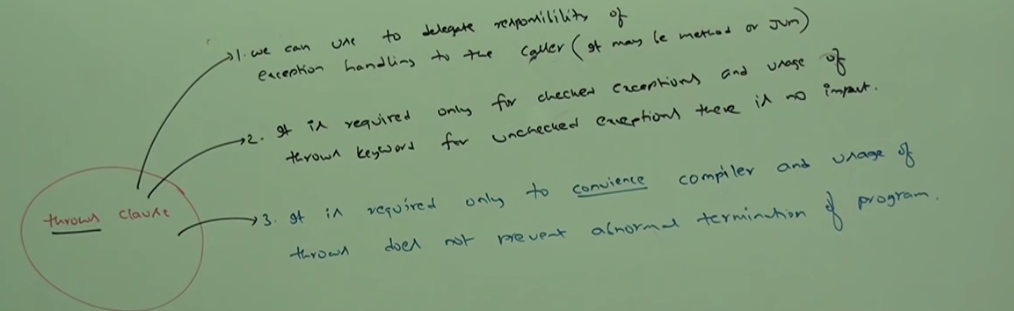 1. we can use to delegate responsilility of
exception handling to the caller (It may be method or Jvm)
2. It is required only for checked exceptions and usage of
throws keyword for unchecked exceptions there is no impact.
throws clause
3. It is required only to convience compiler and usage of
throws does not prevent abnormal termination of program.